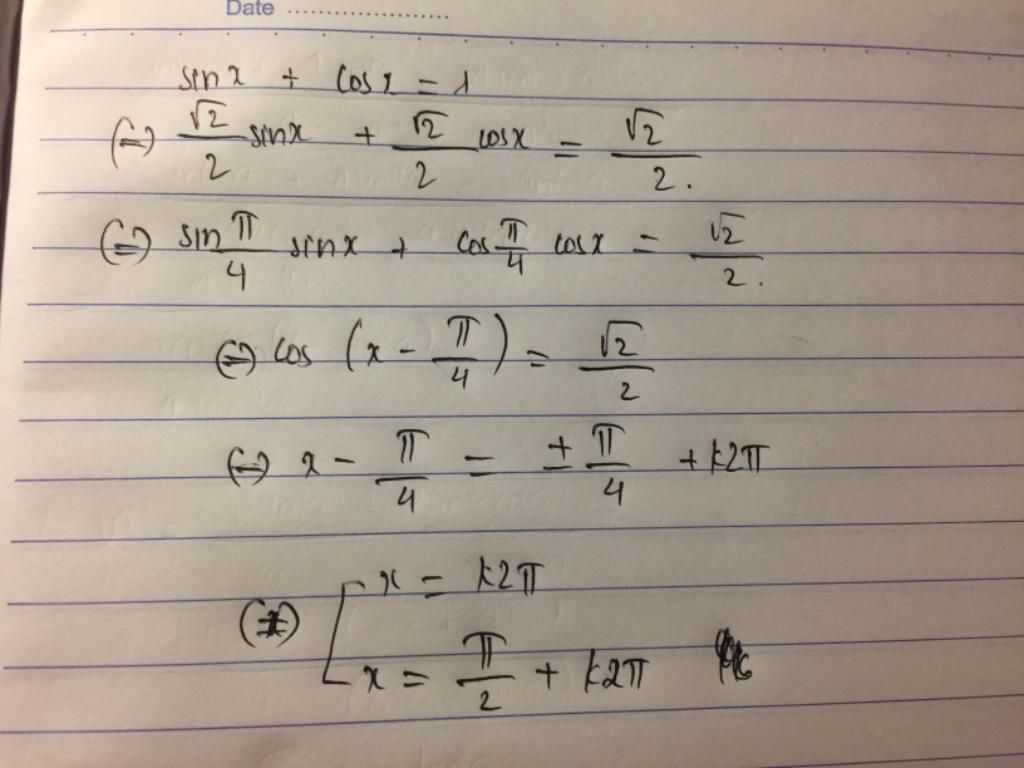 Date ........................
sinx + cosx = 1
(=) √2/2 sinx + √2/2 cosx = √2/2.
(=) sin π/4 sinx + cos π/4 cosx = √2/2.
(=) cos (x - π/4) = √2/2
(=) x - π/4 = ± π/4 + k2π
(=) [ x = k2π
x = π/2 + k2π